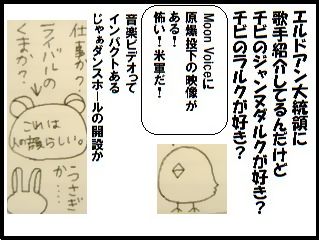 エルドアン大統領に
歌手紹介してるんだけど
チビのジャンヌダルクが好き？
チビのラルクが好き？
Moon Voiceに
原爆投下の映像が
ある！
怖い！米軍だ！
音楽ビデオって
インパクトある
じゃぁダンスホールの開設か
仕事か？
ライバルの
くまか？
これは
人の顔らしい。
うさぎ
か……